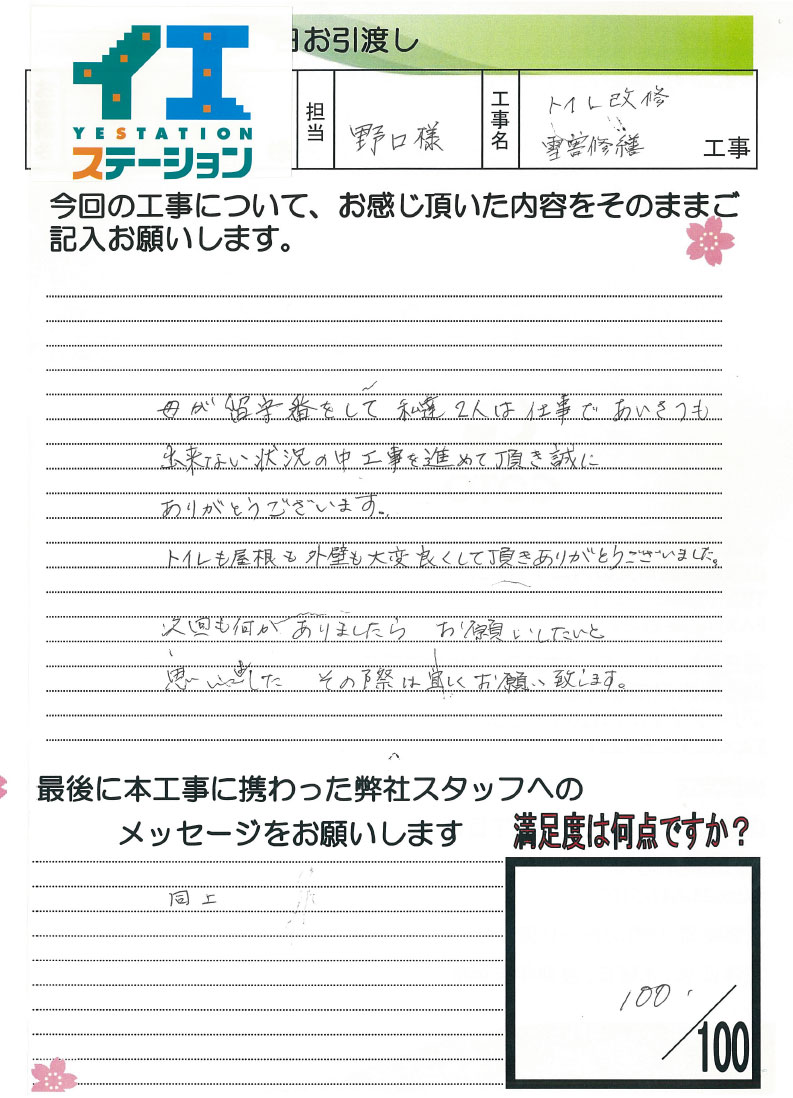 イエ
YESTATION
ステーション
日お引渡し
担当
野口様
工事名
トイレ改修
雪害修繕
工事
今回の工事について、お感じ頂いた内容をそのままご
記入お願いします。
母が留守番をして 私達2人は仕事であいさつも
出来ない状況の中工事を進めて頂き誠に
ありがとうございます。
トイレも屋根も外壁も大変良くして頂きありがとうございました。
次回も何かありましたら お願いしたいと
思いました その際は宜しくお願い致します。
最後に本工事に携わった弊社スタッフへの
メッセージをお願いします
満足度は何点ですか?
同上
100
/100